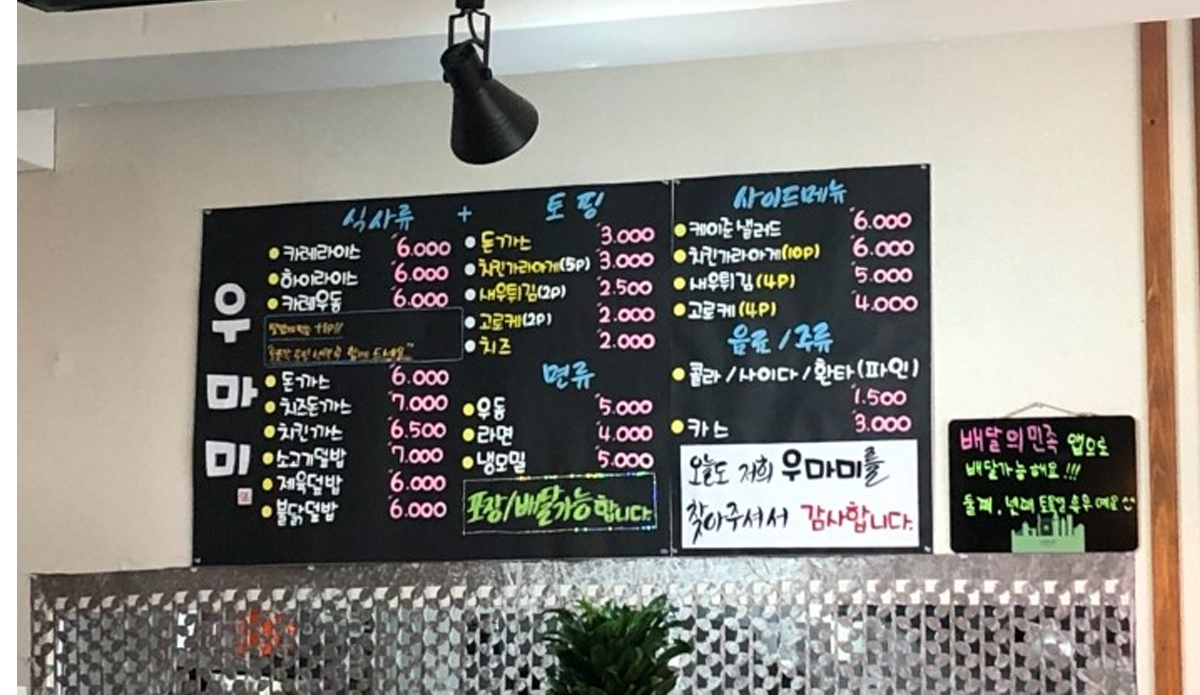 우마미
식사류 + 토핑
카레라이스 6.000
하이라이스 6.000
카레우동 6.000
돈까스 6.000
치즈돈까스 7.000
치킨까스 6.500
소고기덮밥 7.000
제육덮밥 6.000
불닭덮밥 6.000
돈까스 3.000
치킨가라아게(5P) 3.000
새우튀김(2P) 2.500
고로케(2P) 2.000
치즈 2.000
면류
우동 5.000
라면 4.000
냉모밀 5.000
포장/배달가능합니다.
사이드메뉴
케이준샐러드 6.000
치킨가라아게(10P) 6.000
새우튀김(4P) 5.000
고로케(4P) 4.000
음료/주류
콜라/사이다/환타(파인)
1.500
카스 3.000
오늘도 저희 우마미를
찾아주셔서 감사합니다.
배달의민족 앱으로
배달가능해요!!!